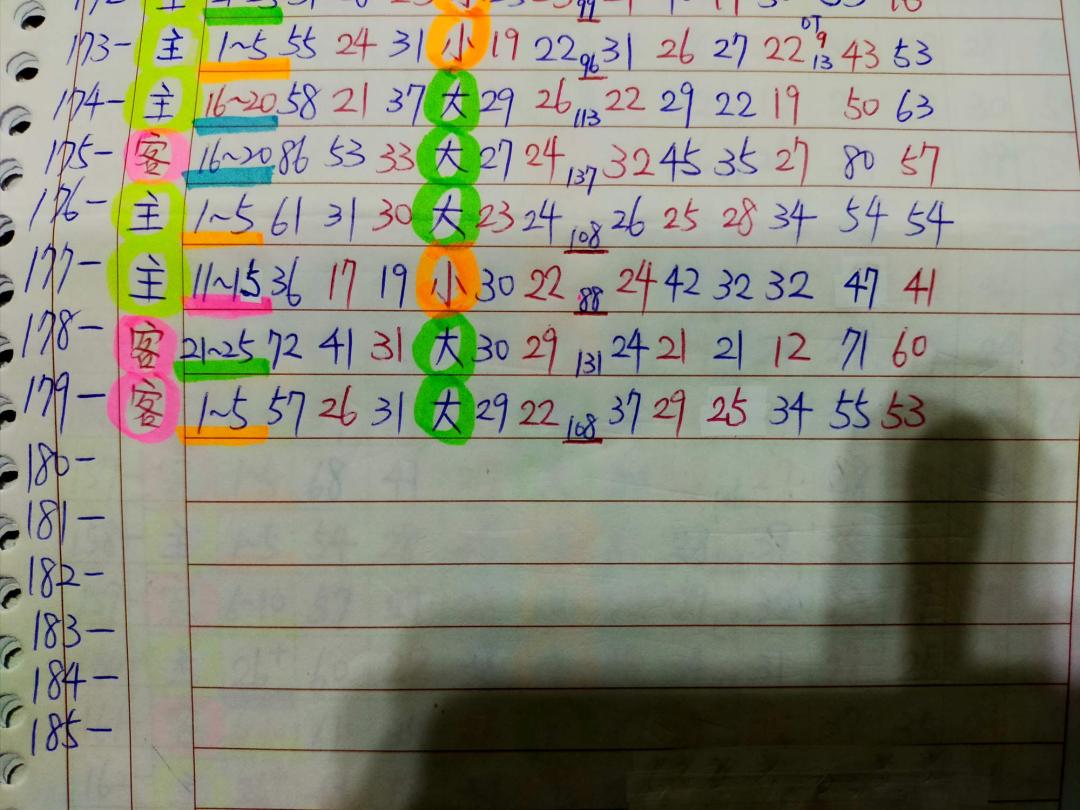 173- 主 1~5 55 24 31 小 19 22 96 31 26 27 22 OT 9 13 43 53
174- 主 16~20 58 21 37 大 29 26 113 22 29 22 19 50 63
175- 客 16~20 86 53 33 大 27 24 137 32 45 35 27 80 57
176- 主 1~5 61 31 30 大 23 24 108 26 25 28 34 54 54
177- 主 11~15 36 17 19 小 30 22 88 24 42 32 32 47 41
178- 客 21~25 72 41 31 大 30 29 131 24 21 21 12 71 60
179- 客 1~5 57 26 31 大 29 22 108 37 29 25 34 55 53
180-
181-
182-
183-
184-
185-